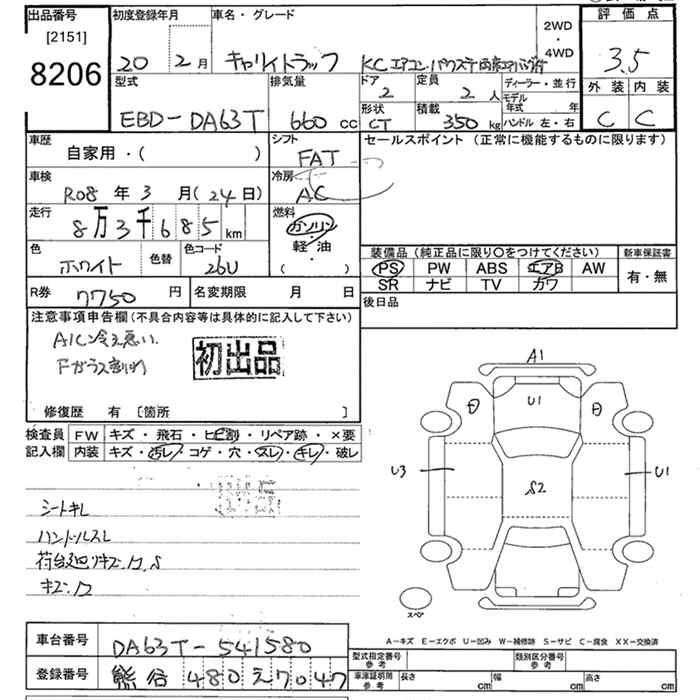 出品番号
[2151]
8206
初度登録年月
20 2月
車名・グレード
キャリイトラック KCエアコン・パワステ
2WD
・
4WD
評価点
3.5
外装 内装
C C
型式
EBD-DA63T
排気量
660 cc
ドア
2
定員
2人
ディーラー・並行
モデル年式 年
ハンドル 左・右
形状
CT
積載
350 kg
車歴
自家用・( )
シフト
FAT
セールスポイント (正常に機能するものに限ります)
車検
R08年 3月(24日)
冷房
AC
走行
8万3千685 km
燃料
ガソリン
軽・油
( )
色
ホワイト
色替
色コード
26U
装備品 (純正品に限り〇をつけてください)
新車保証書
PS PW ABS エアB AW
SR ナビ TV カワ
有・無
R券 7750 円
名変期限 月 日
後日品
注意事項申告欄(不具合内容等は具体的に記入して下さい)
A/C冷え悪い
Fガラス割れ
初出品
修復歴 有 [箇所 ]
検査員記入欄
FW キズ・飛石・ヒビ割・リペア跡・×要
内装 キズ・汚レ・コゲ・穴・スレ・キレ・破レ
シートキレ
ハンドルスレ
荷台廻りキズ.ワ.S
キズ.ワ
A1
U1
U3
U1
S2
スペア
A-キズ E-エクボ U-凹み W-補修跡 S-サビ C-腐食 XX-交換済
車台番号 DA63T-541580
登録番号 熊谷 480 え 7047
型式指定番号 参考
類別区分番号 参考
車庫証明用 参考
長さ cm
幅 cm
高さ cm